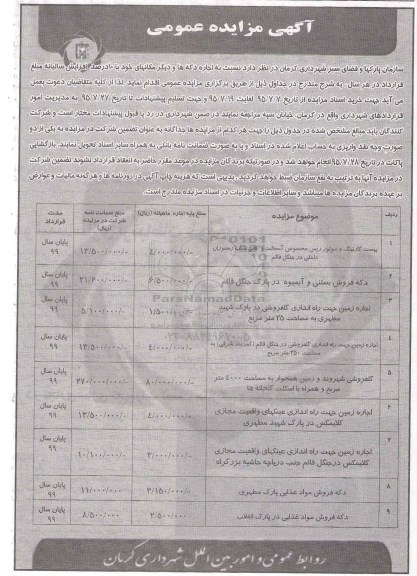 آگهی مزایده عمومی
سازمان پارکها و فضای سبز شهرداری کرمان در نظر دارد نسبت به اجاره دکه ها و دیگر مکانهای خود با ۱۰درصد افزایش سالیانه مبلغ
قرارداد در هر سال به شرح مندرج در جداول ذیل از طریق برگزاری مزایده عمومی اقدام نماید. لذا از کلیه متقاضیان دعوت بعمل
می آید جهت خرید اسناد مزایده از تاریخ ۹۵.۷.۷ لغایت ۹۵.۷.۱۹ و جهت تسلیم پیشنهادات تا تاریخ ۹۵.۷.۲۷ به مدیریت امور
قراردادهای شهرداری واقع در کرمان خیابان سپه مراجعه نمایند در ضمن شهرداری در رد یا قبول پیشنهادات مختار است و شرکت
کنندگان باید مبلغ مشخص شده در جدول ذیل را جهت هر کدام از مزایده ها جداگانه به عنوان تضمین شرکت در مزایده به یکی از دو
صورت وجه نقد واریزی به حساب اعلام شده در اسناد و یا به صورت ضمانت نامه بانکی به همراه سایر اسناد تحویل نمایند. بازگشایی
پاکات در تاریخ ۹۵.۷.۲۸ انجام خواهد شد و در صورتیکه برندگان مزایده در موعد مقرر حاضر به انعقاد قرارداد نشوند تضمین شرکت
در مزایده آنها به ترتیب به نفع سازمان ضبط خواهد گردید. بدیهی است که هزینه چاپ آگهی در روزنامه ها و هرگونه مالیات و عوارض
بر عهده برندگان مزایده ها میباشد و سایر اطلاعات و جزئیات در اسناد مزایده مندرج است.
ردیف موضوع مزایده مبلغ پایه اجاره ماهیانه (ریال) مبلغ ضمانت نامه شرکت در مزایده (ریال) مدت قرارداد
۱ پیست کارتینگ و موتور ریس در جنگل قائم ۴/۰۰۰/۰۰۰/- ۱۳/۵۰۰/۰۰۰/- پایان سال ۹۹
۲ دکه فروش بستنی و آبمیوه در پارک جنگلی قائم ۶/۵۰۰/۰۰۰/- ۲۱/۶۰۰/۰۰۰/- پایان سال ۹۹
۳ اجاره زمین جهت راه اندازی گلفروشی در پارک شهید مطهری به مساحت ۲۵ متر مربع ۱/۵۰۰/۰۰۰/- ۵/۱۰۰/۰۰۰/- پایان سال ۹۹
۴ اجاره زمین جهت راه اندازی گلفروشی در جنگل قائم به مساحت ۲۵۰ متر مربع ۴/۰۰۰/۰۰۰/- ۱۳/۵۰۰/۰۰۰/- پایان سال ۹۹
۵ گلفروشی شهروند و زمین همجوار به مساحت ۴۰۰۰ متر مربع و همراه با اسکلت گلخانه ها ۸۰/۰۰۰/۰۰۰/- ۲۷۰/۰۰۰/۰۰۰/- پایان سال ۹۹
۶ اجاره زمین جهت راه اندازی عینکهای واقعیت مجازی کلابمکس در پارک شهید مطهری ۴/۰۰۰/۰۰۰/- ۱۳/۵۰۰/۰۰۰/- پایان سال ۹۹
۷ اجاره زمین جهت راه اندازی عینکهای واقعیت مجازی کلابمکس در جنگل قائم جنب دریاچه حاشیه بزرگراه ۳/۰۰۰/۰۰۰/- ۱۰/۱۰۰/۰۰۰/- پایان سال ۹۹
۸ دکه فروش مواد غذایی پارک مطهری ۳/۱۵۰/۰۰۰/- ۱۱/۰۰۰/۰۰۰ پایان سال ۹۹
۹ دکه فروش مواد غذایی در پارک انقلاب ۲/۵۰۰/۰۰۰ ۸/۵۰۰/۰۰۰ پایان سال ۹۹
ParsNamadData
روابط عمومی و امور بین الملل شهرداری کرمان